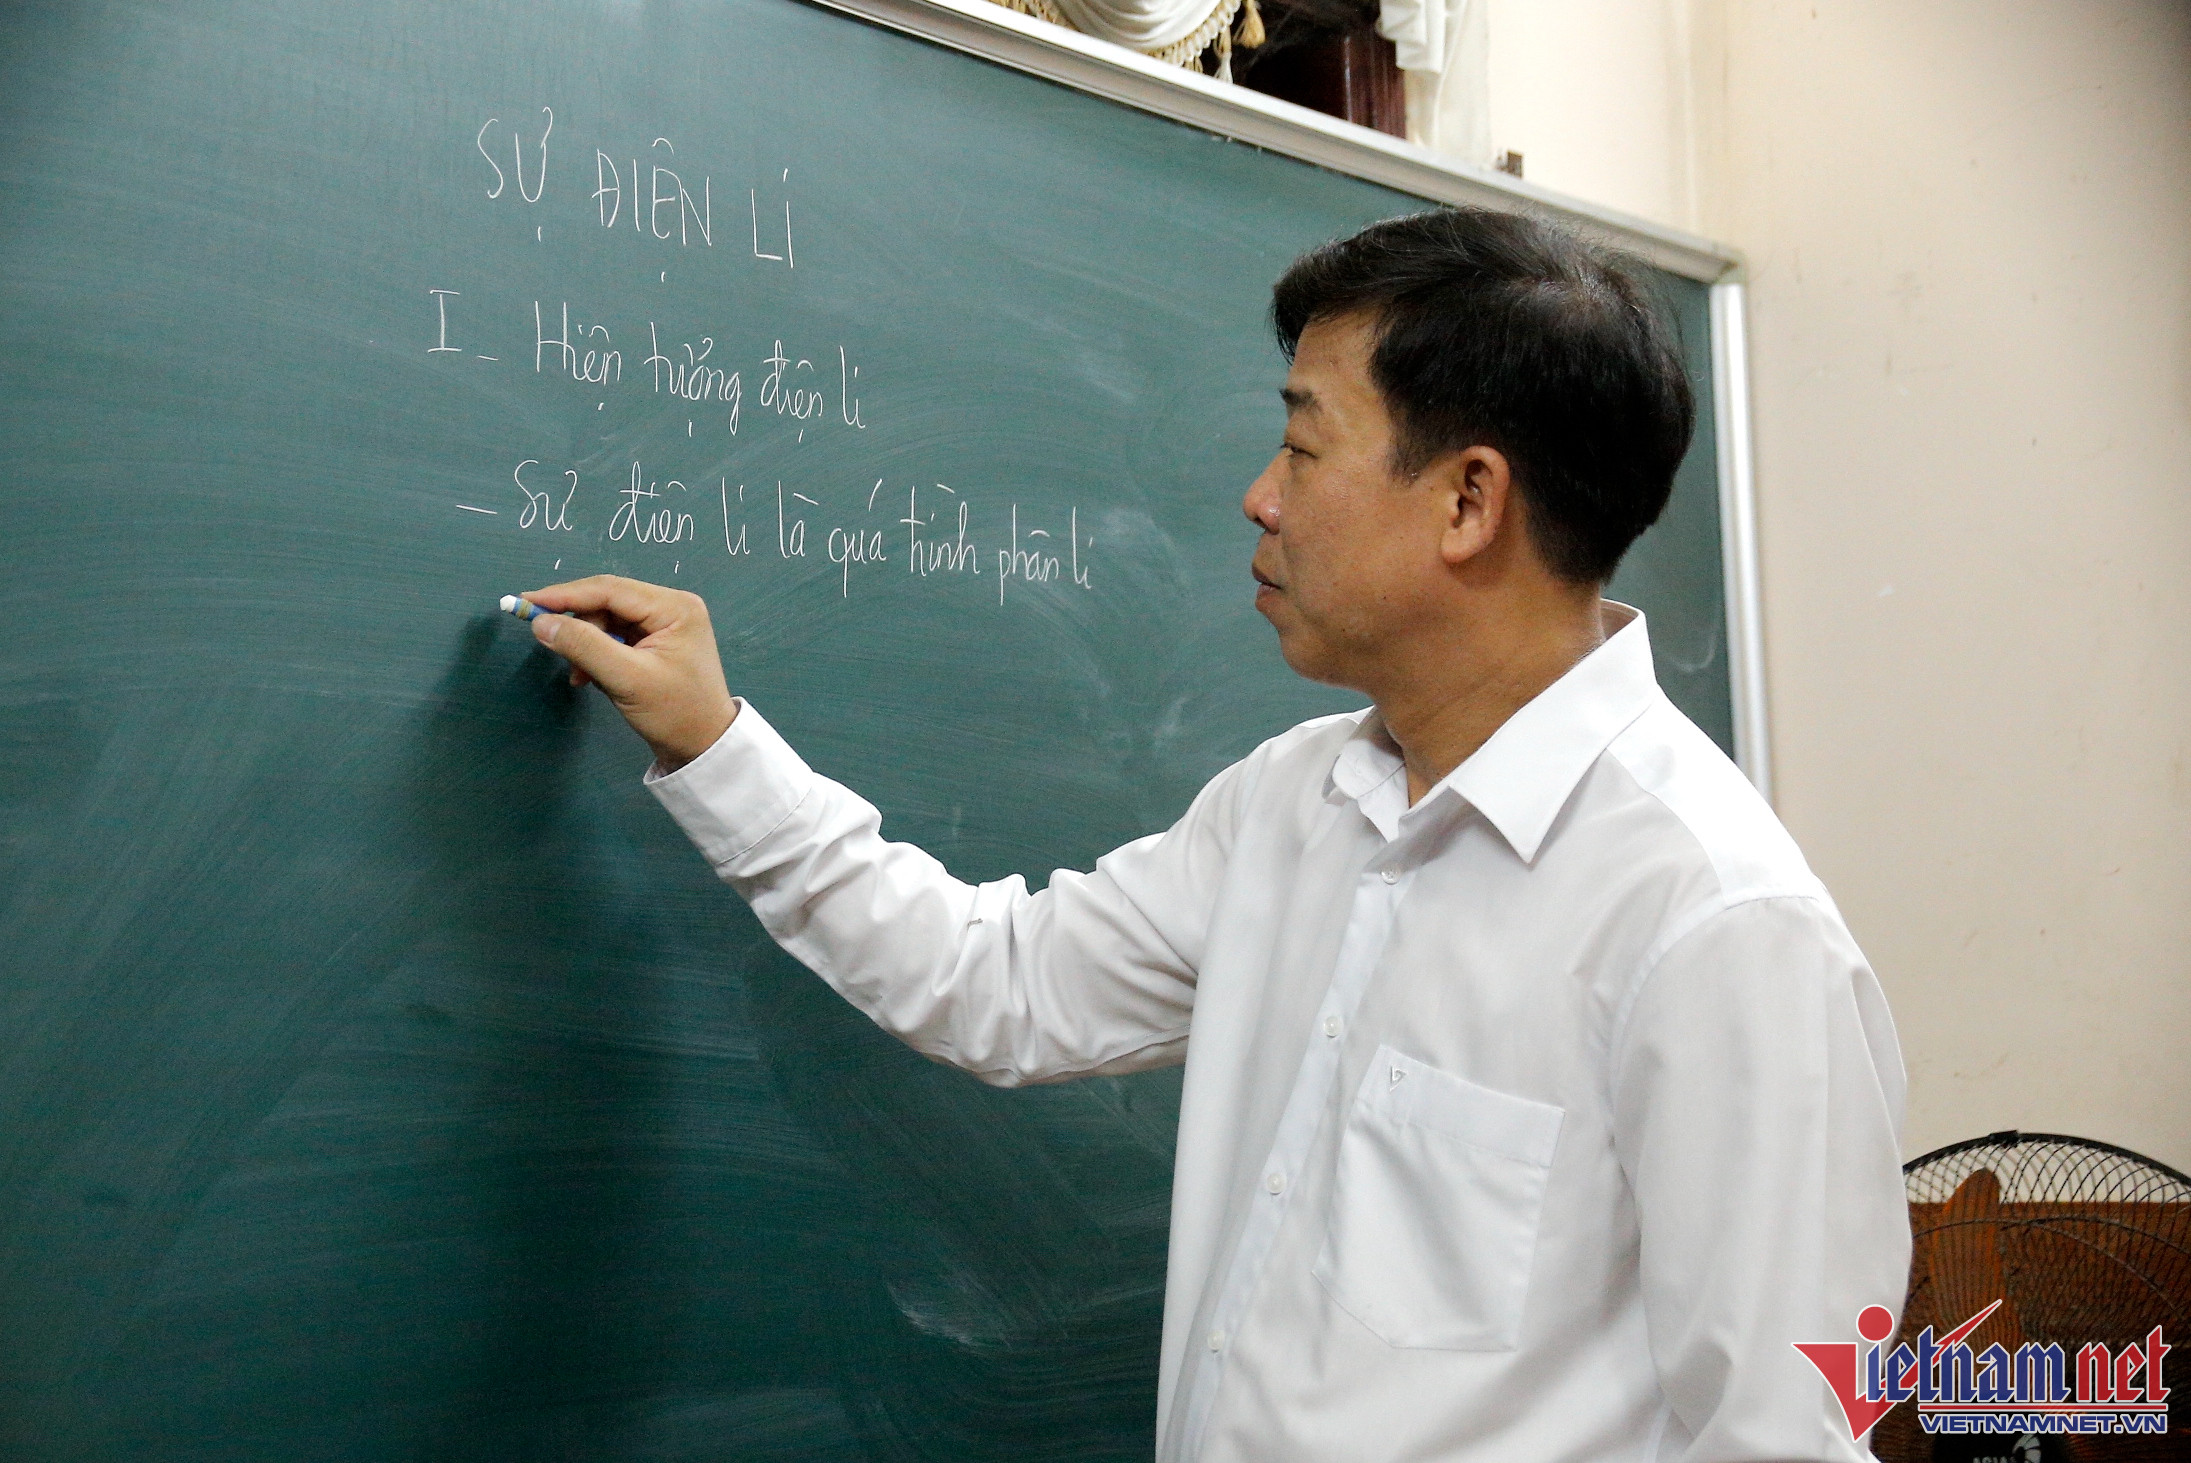 SỰ ĐIỆN LI
I - Hiện tượng điện li
- Sự điện li là quá trình phân li
Vietnamnet
VIETNAMNET.VN